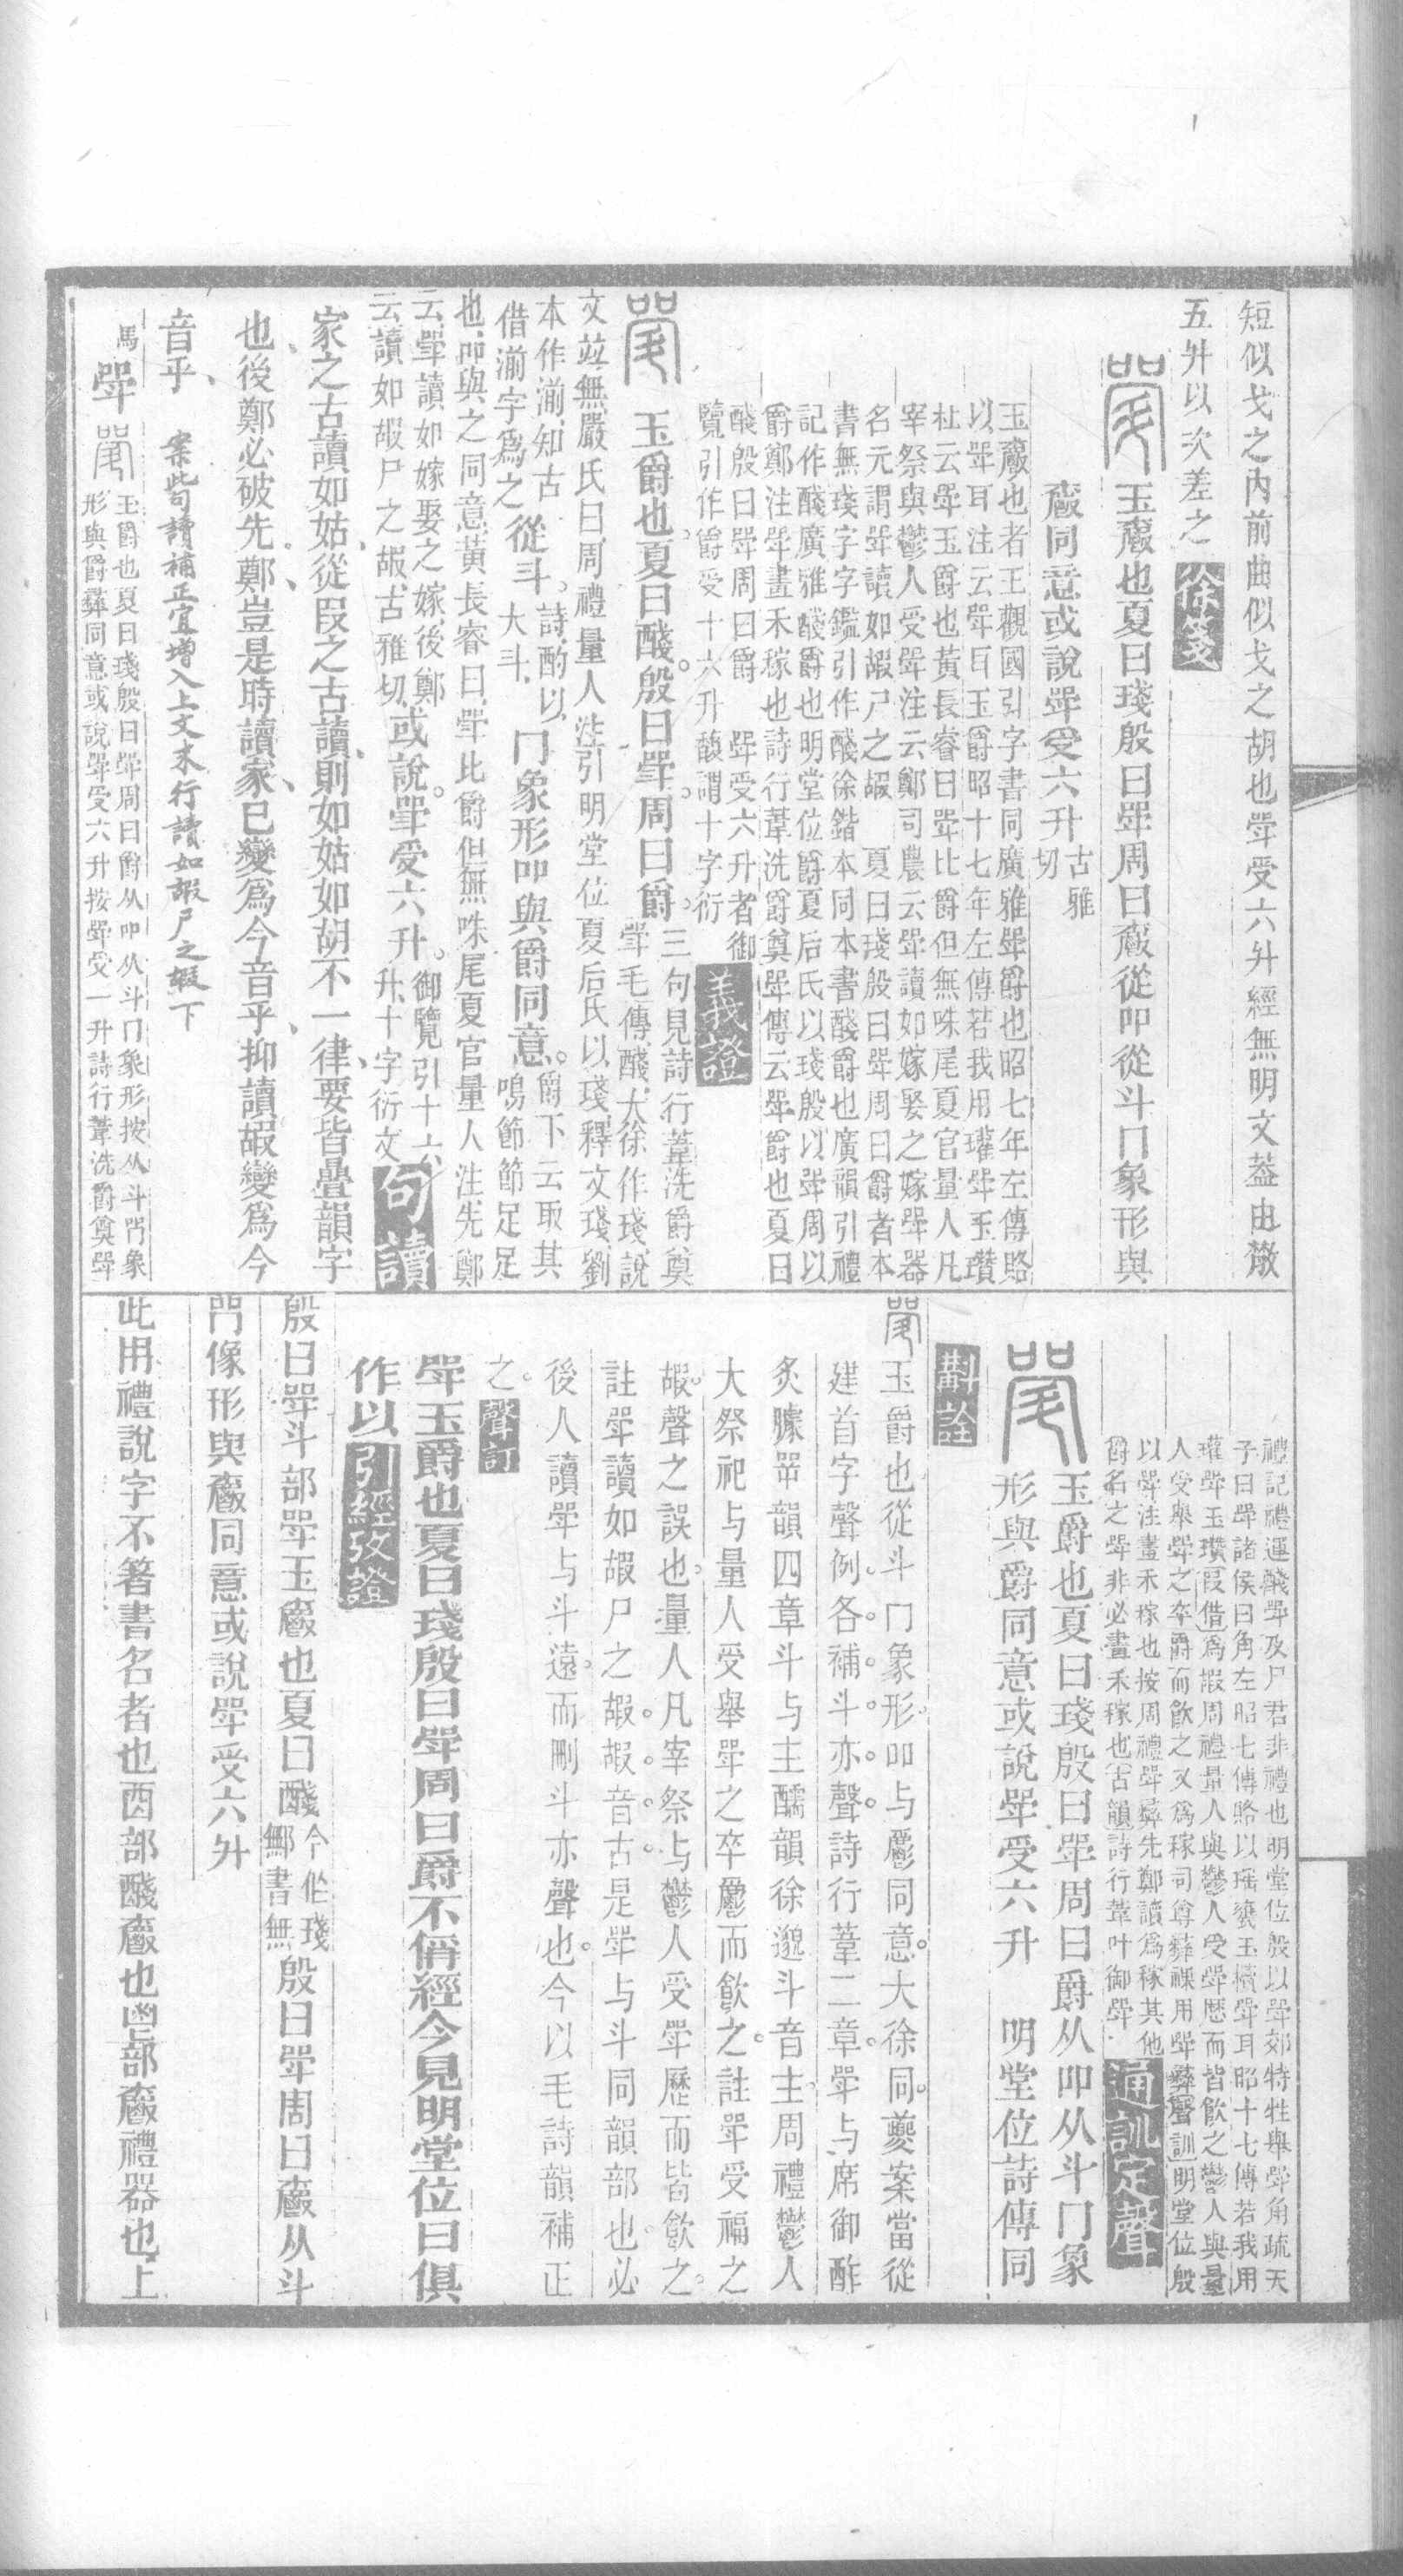 短似戈之內前曲似戈之胡也斝受六升經無明文葢由㪚
五升以次差之徐箋
玉爵也夏曰琖殷曰斝周曰爵從吅從斗冂象形與
爵同意或說斝受六升古雅
切
玉爵也者王觀國引字書同廣雅斝爵也昭七年左傳賂
以斝耳注云斝曰玉爵昭十七年左傳若我用瓘斝玉瓚
杜云斝玉爵也黃長睿曰斝比爵但無咮尾夏官量人凡
宰祭與鬱人受斝注云鄭司農云斝讀如嫁娶之嫁斝器
名元謂斝讀如嘏尸之嘏 夏曰琖殷曰斝周曰爵者本
書無琖字字鑑引作醆徐鍇本同本書醆爵也廣韻引禮
記作醆廣雅醆爵也明堂位爵夏后氏以琖殷以斝周以
爵鄭注斝畫禾稼也詩行葦洗爵奠斝傳云斝爵也夏曰
醆殷曰斝周曰爵 斝受六升者御
覽引作爵受十六升馥謂十字衍義證
玉爵也夏曰醆殷曰斝周曰爵三句見詩行葦洗爵奠
斝毛傳醆大徐作琖說
文竝無嚴氏曰周禮量人注引明堂位夏后氏以琖釋文琖劉
本作湔知古
借湔字爲之從斗詩酌以
大斗冂象形吅與爵同意爵下云取其
鳴節節足足
也吅與之同意黃長睿曰斝比爵但無咮尾夏官量人注先鄭
云斝讀如嫁娶之嫁後鄭
云讀如嘏尸之嘏古雅切或說斝受六升御覽引十六
升十字衍文句讀
家之古讀如姑從叚之古讀則如姑如胡不一律要皆疊韻字
也後鄭必破先鄭豈是時讀家已變爲今音乎抑讀嘏變爲今
音乎 案此句讀補正宜增入上文末行讀如嘏尸之嘏下
馬斝
玉爵也夏曰琖殷曰斝周曰爵从吅从斗冂象形按从斗𠕁象
形與爵彝同意或說斝受六升按斝受一升詩行葦洗爵奠斝
禮記禮運醆斝及尸君非禮也明堂位殷以斝郊特牲舉斝角疏天
子曰斝諸侯曰角左昭七傳賂以瑤甕玉櫝斝耳昭十七傳若我用
瓘斝玉瓚叚借爲嘏周禮量人與鬱人受斝歷而皆飲之鬱人與量
人受舉斝之卒爵而飲之又爲稼司尊彝祼用斝彝聲訓明堂位殷
以斝注畫禾稼也按周禮斝彝先鄭讀爲稼其他
爵名之斝非必畫禾稼也古韻詩行葦叶御斝通訓定聲
玉爵也夏曰琖殷曰斝周曰爵从吅从斗冂象
形與爵同意或說斝受六升 明堂位詩傳同
斠詮
玉爵也從斗冂象形吅与鬱同意大徐同夔案當從
建首字聲例各補斗亦聲詩行葦二章斝与席御酢
炙臄咢韻四章斗与主醹韻徐邈斗音主周禮鬱人
大祭祀与量人受舉斝之卒爵而飲之註斝受福之
嘏聲之誤也量人凡宰祭与鬱人受斝歷而皆飲之
註斝讀如嘏尸之嘏嘏音古是斝与斗同韻部也必
後人讀斝与斗遠而刪斗亦聲也今以毛詩韻補正
之聲訂
斝玉爵也夏曰琖殷曰斝周曰爵不偁經今見明堂位曰俱
作以引經攷證
殷曰斝斗部斝玉爵也夏曰醆今作琖
鄦書無殷曰斝周曰爵从斗
門像形與爵同意或說斝受六升
此用禮說字不箸書名者也酉部醆爵也鬯部爵禮器也上